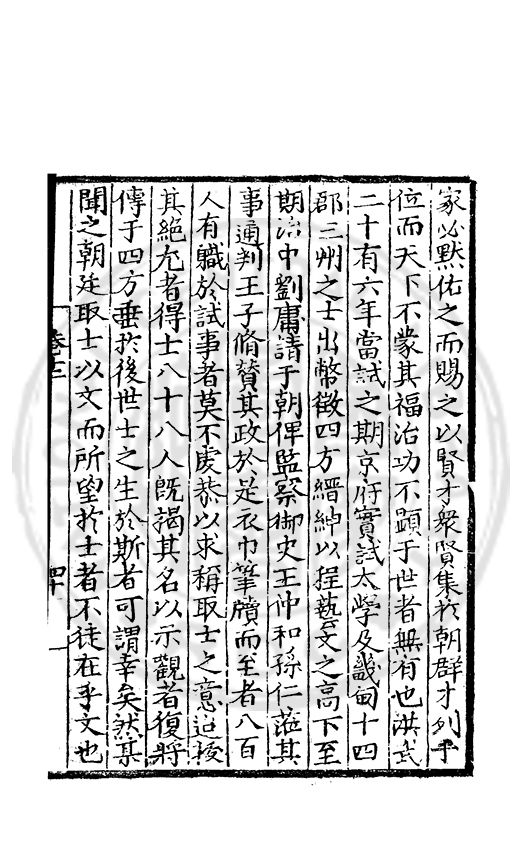 家必默佑之而賜之以賢才衆賢集於朝群才列乎
位而天下不蒙其福治功不顯于世者無有也洪武
二十有六年當試之期京府實試太學及畿甸十四
郡三州之士出幣徵四方縉紳以程藝文之高下至
期治中劉庸請于朝俾監察御史王仲和孫仁蒞其
事通判王子脩賛其政於是衣巾筆牘而至者八百
人有職於試事者莫不虔恭以求稱取士之意迨撤
其絕尤者得士八十八人既揭其名以示觀者復將
傳于四方垂於後世士之生於斯者可謂幸矣然某
聞之朝廷取士以文而所望於士者不徒在乎文也
卷三
四十